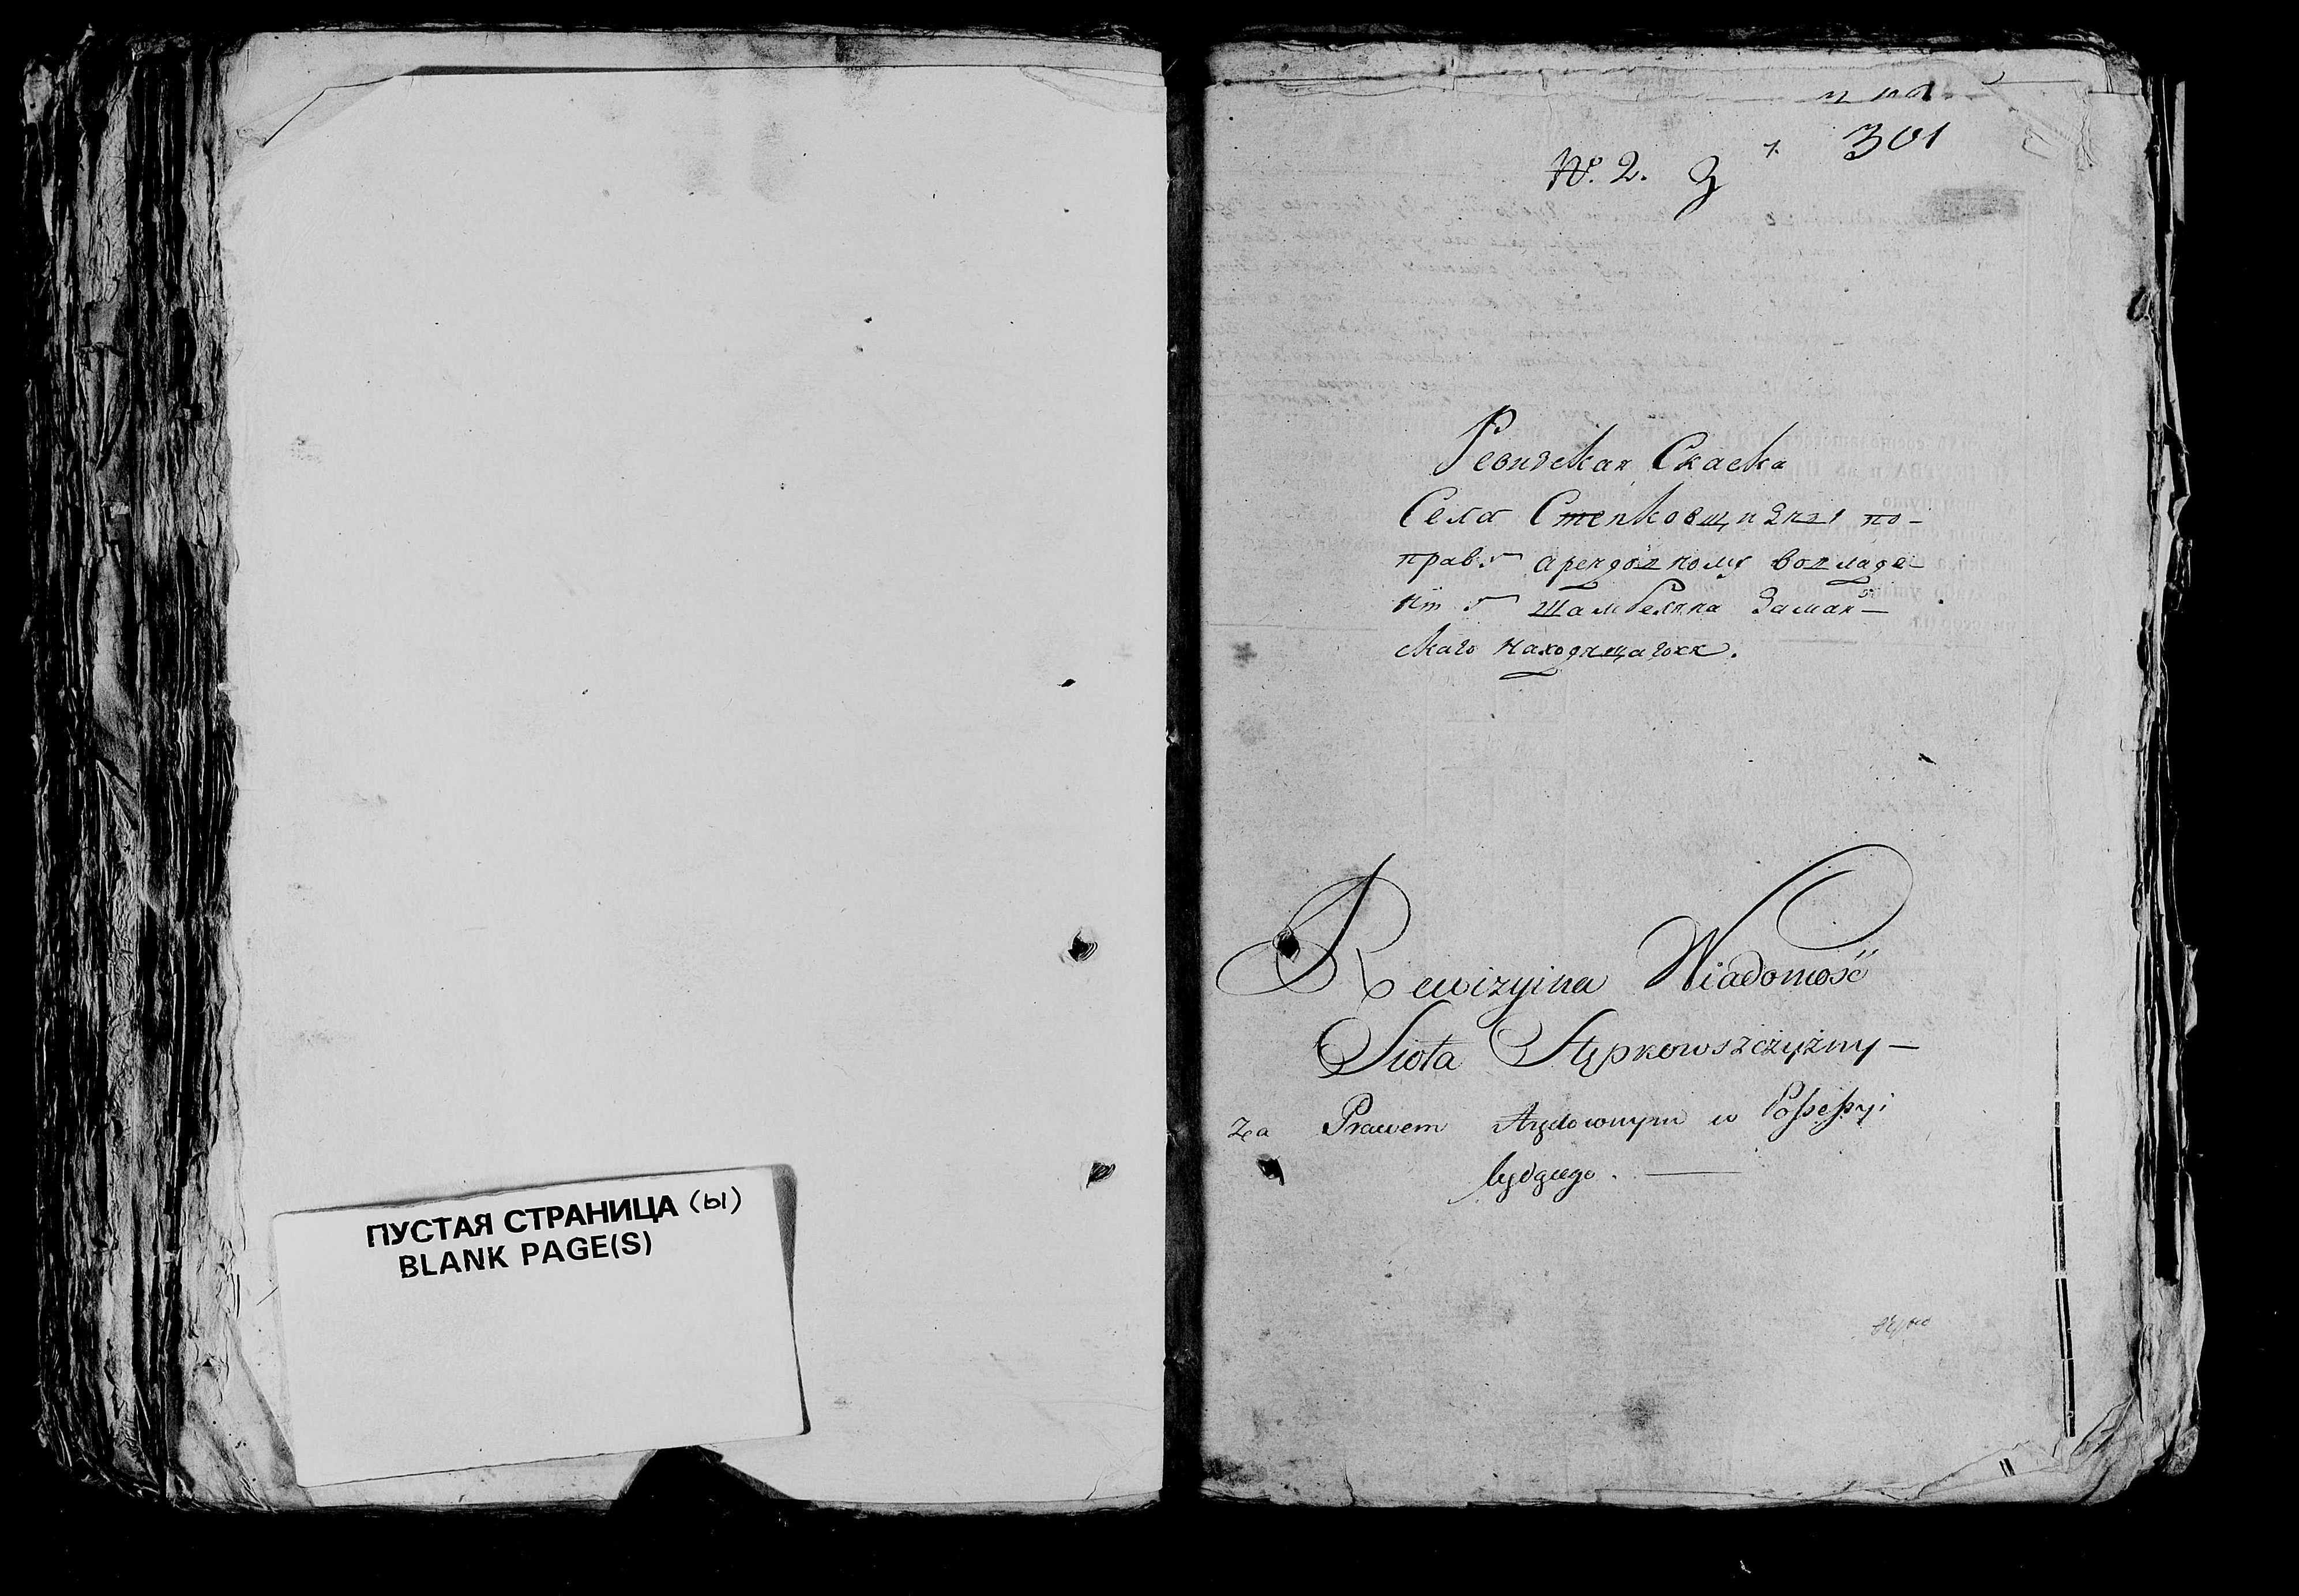 ПУСТАЯ СТРАНИЦА (ы)
BLANK PAGE(S)
301
№. 2.
Ревизская Скаска
Села Степковщизны по-
праву арендовному вовладе-
нїи у Шамбеляна Заман-
скаго находящагося.
Rewizyina Wiadomość
Sioła Stępkowszczyzny—
Za Prawem Aredownym w Possessyi
będącego.